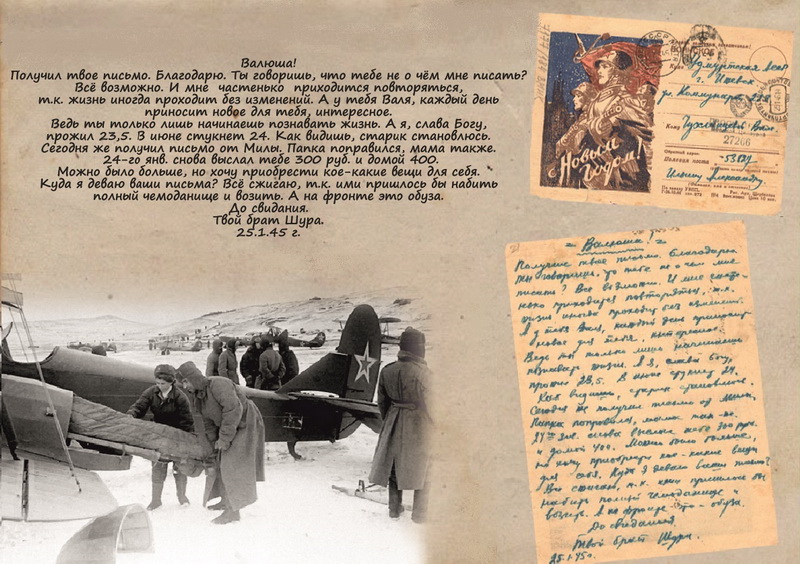 Валюша!
Получил твое письмо. Благодарю. Ты говоришь, что тебе не о чём мне писать?
Всё возможно. И мне частенько приходится повторяться,
т.к. жизнь иногда проходит без изменений. А у тебя Валя, каждый день
приносит новое для тебя, интересное.
Ведь ты только лишь начинаешь познавать жизнь. А я, слава Богу,
прожил 23,5. В июне стукнет 24. Как видишь, старик становлюсь.
Сегодня же получил письмо от Милы. Папка поправился, мама также.
24-го янв. снова выслал тебе 300 руб. и домой 400.
Можно было больше, но хочу приобрести кое-какие вещи для себя.
Куда я деваю ваши письма? Всё сжигаю, т.к. ими пришлось бы набить
полный чемоданище и возить. А на фронте это обуза.
До свидания.
Твой брат Шура.
25.1.45 г.
Куда
Удмуртская
Ижевск
ул. Коммунаров
Кому
27266
Обратный адрес:
Полевая почта
Ильину Александру
С Новым
годом!
= Валюша! =
Получил твое письмо. Благодарю
Ты говоришь, что тебе не о чем мне
писать? Все возможно. И мне часте-
нько приходится повторяться, т.к.
жизнь иногда проходит без изменений.
А у тебя Валя, каждый день приносит
новое для тебя, интересное.
Ведь ты только лишь начинаешь
познавать жизнь. А я, слава богу,
прожил 23,5. В июне стукнет 24.
Как видишь, старик становлюсь.
Сегодня же получил письмо от Милы.
Папка поправился, мама так-же.
24го янв. снова выслал тебе 300 руб.
и домой 400. Можно было больше,
но хочу приобрести кое-какие вещи
для себя. Куда я деваю ваши письма?
Все сжигаю, т.к. ими пришлось бы
набить полный чемоданище и
возить. А на фронте это - обуза.
До свидания.
Твой брат Шура.
25.1.45г.